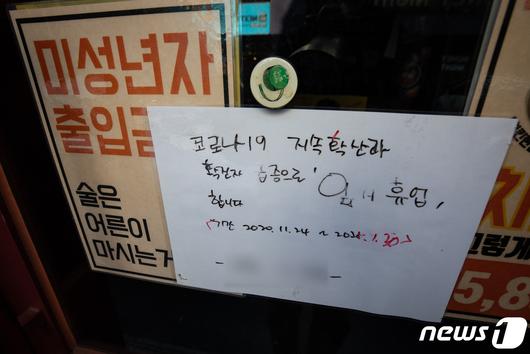 미성년자
출입금
술은
어른이
마시는거
코로나19 지속 확산과
확진자 급증으로 임시 휴업,
합니다
(기간 2020.11.24 ~ 2021.1.30)
그렇게
5,8
news1